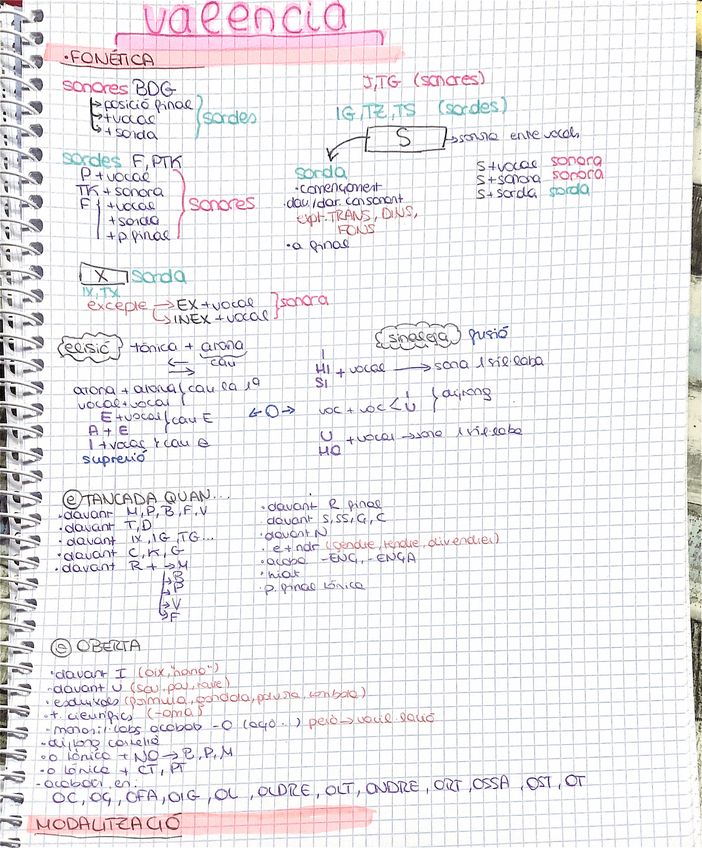 valencià
·FONÉTICA
sonores BDG
posició final
+vocal
+sorda
sordes
J,TG (sonores)
IG,TZ,TS (sordes)
S
sonora entre vocals
sordes F,PTK
P+vocal
TK+sonora
F +vocal
+sorda
+p.final
sonores
sorda
·començament
·dav/dar. consonant
TRANS, DINS,
FONS
·a final
S+vocal sonora
S+sonora sonora
S+sorda sorda
X sorda
IX,TX
excepte EX+vocal
INEX+vocal
sonora
elisió tònica + atona
cau
atona + atona cau la 1ª
vocal+vocal
E+vocal cau E
A+E
I+vocal cau e
supresió
sinalefa fusió
I
HI + vocal sona 1 sil·laba
SI
←O→
voc + voc < I
U
diftong
U
HO + vocal → sona 1 sil·laba
e TANCADA QUAN...
·davant M,P,B,F,V
·davant T,D
·davant IX,IG,TG...
·davant C,K,G
·davant R + →M
B
P
V
F
·davant R final
·davant S,SS,G,C
·davant N
·e+ndr (gendre, tendre, divendres)
·acaba -ENC,-ENÇA
·hiat
·p.final tònica
OBERTA
·davant I
·davant U
·esdrúixoles (fórmula, góndola, pòlvora,
·t. científics (-oma)
·monosil·labs acabats -O (açò..) però →
·diftong
·o tònica + NO → B,P,M
·o tònica + CT,PT
·acabaci. en:
OC, OÇ, OFA, OIG, OL, OLDRE, OLT, ONDRE, ORT, OSSA, OST, OT
MODALITZACIÓ